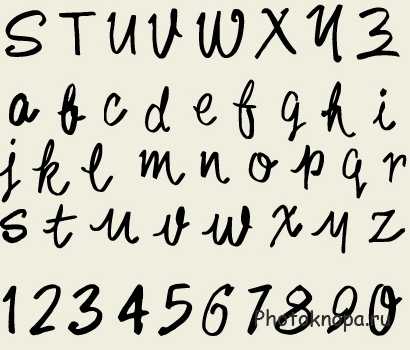 S T U V W X Y Z
a b c d e f g h i
j k l m n o p q r
s t u v w x y z
1 2 3 4 5 6 7 8 9 0
Photoknopa.ru